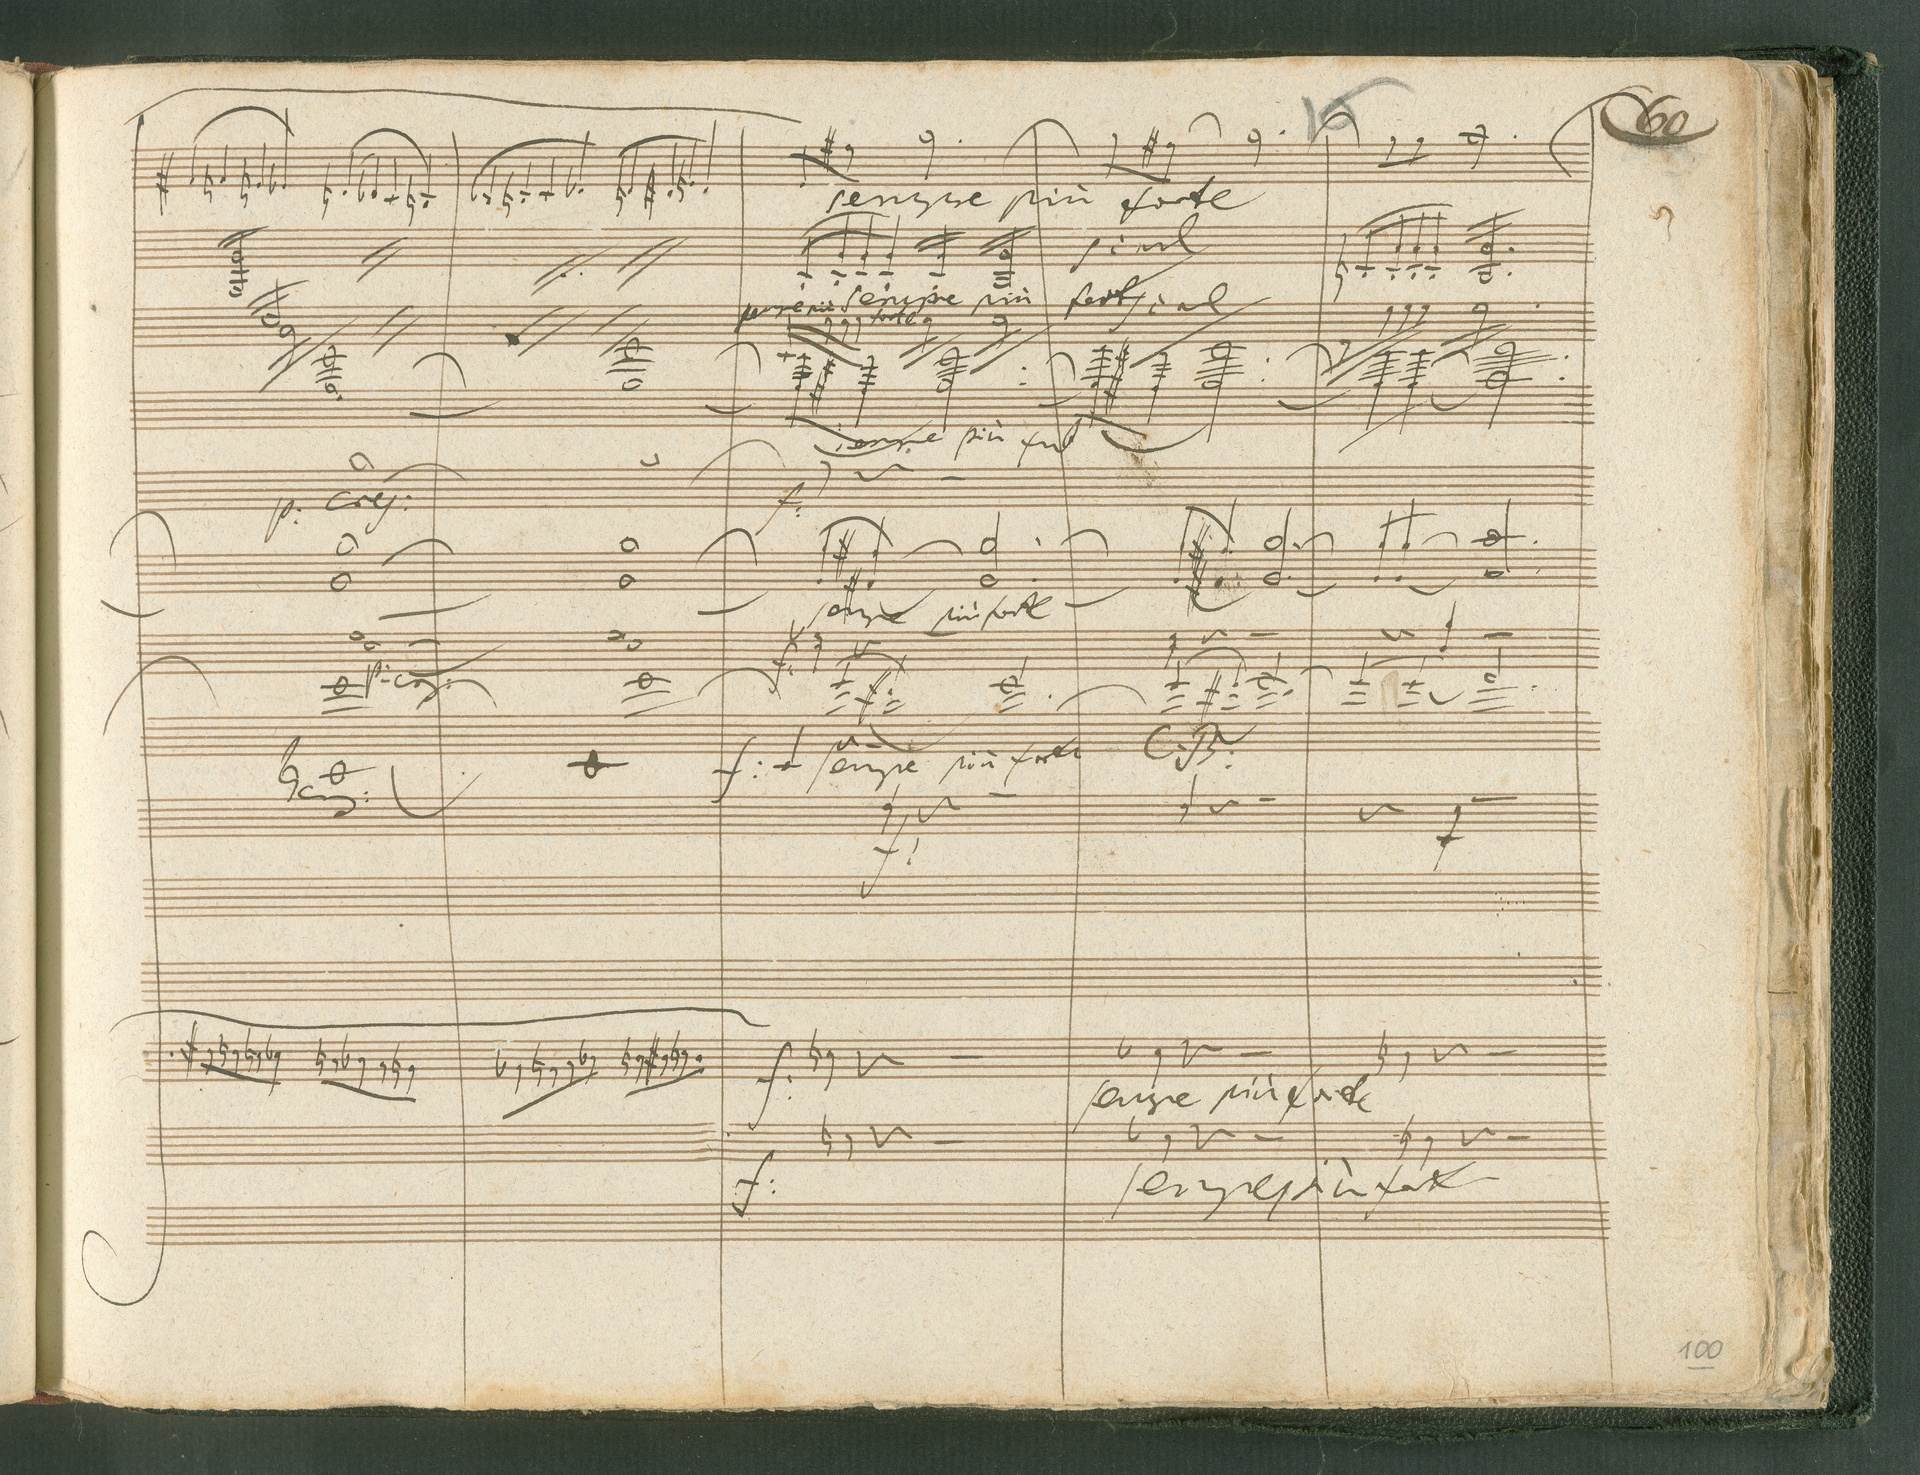 60
sempre più forte
simil
sempre più forte
sempre più forte
simil
sempre più for
p: cres:
f:
sempre più forte
p: cres:
f:
cres:
f:
sempre più forte
C: B:
f:
f:
sempre più forte
f:
sempre più forte
100